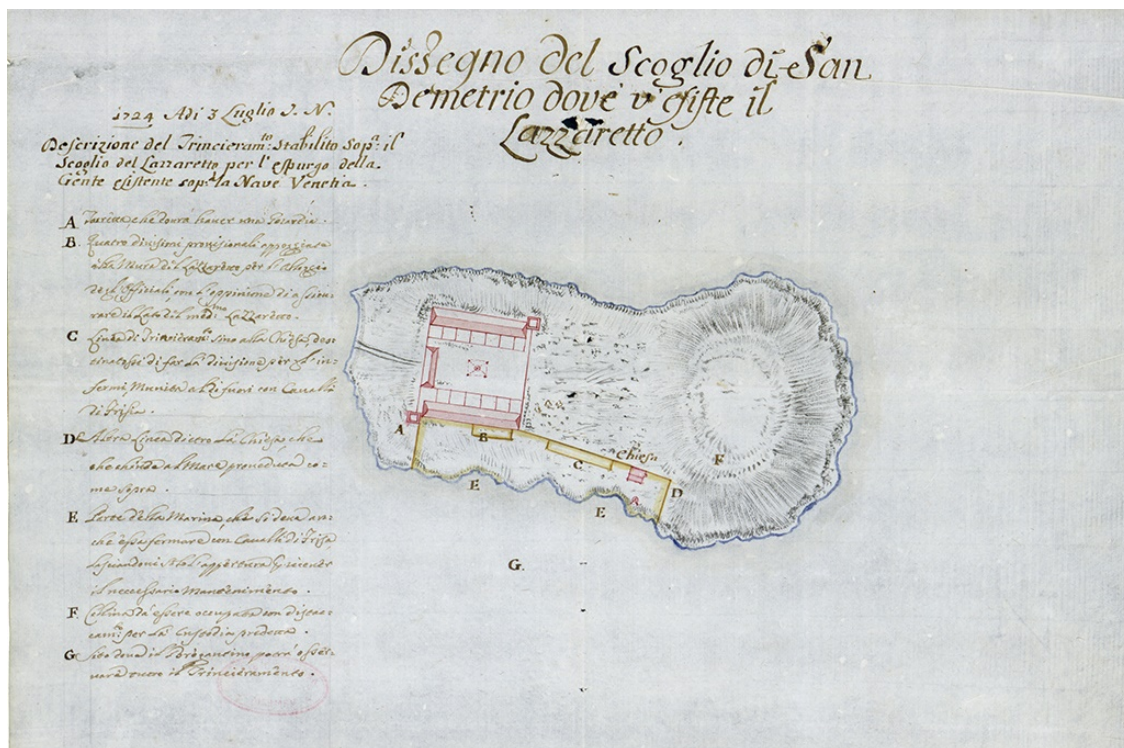 Dissegno del Scoglio di San
Demetrio dove v'esiste il
Lazzaretto.
1724 Adi 3 Luglio S. N.
Descrizione del Trincieram:to Stabilito Sop:a il
Scoglio del Lazzaretto per l'espurgo della
Gente esistente sop:a la Nave Venetia.
A Turetta, che dourà hauer una Guardia
B Quatro divisioni provisionali appoggiate
alla Mura del Lazzaretto per l'alloggio
degl'Officiali, con l'oppinione di
Lazzaretto.
C Linea di Trincieram:to sino alla Chiesa, des
tinatosi di far la divisione per gl'in-
fermi Munita al di fuori con Cavalli
di Frisa.
D Altra Linea dietro la Chiesa, che
che chiuda al Mare proveduta co-
me sopra.
E Parte della Marina, che si deve an-
che essa fermare con Cavalli di Frisa
lasciandovi l'appertura
il necessario Mantenimento.
F Collina dà essere occupata con distac-
cam:ti per la Custodia predetta.
G Sito dove il Bregantino potrà osser-
vare tutto il Trincieramento.
A
B
C
Chiesa
D
E
E
F
G.